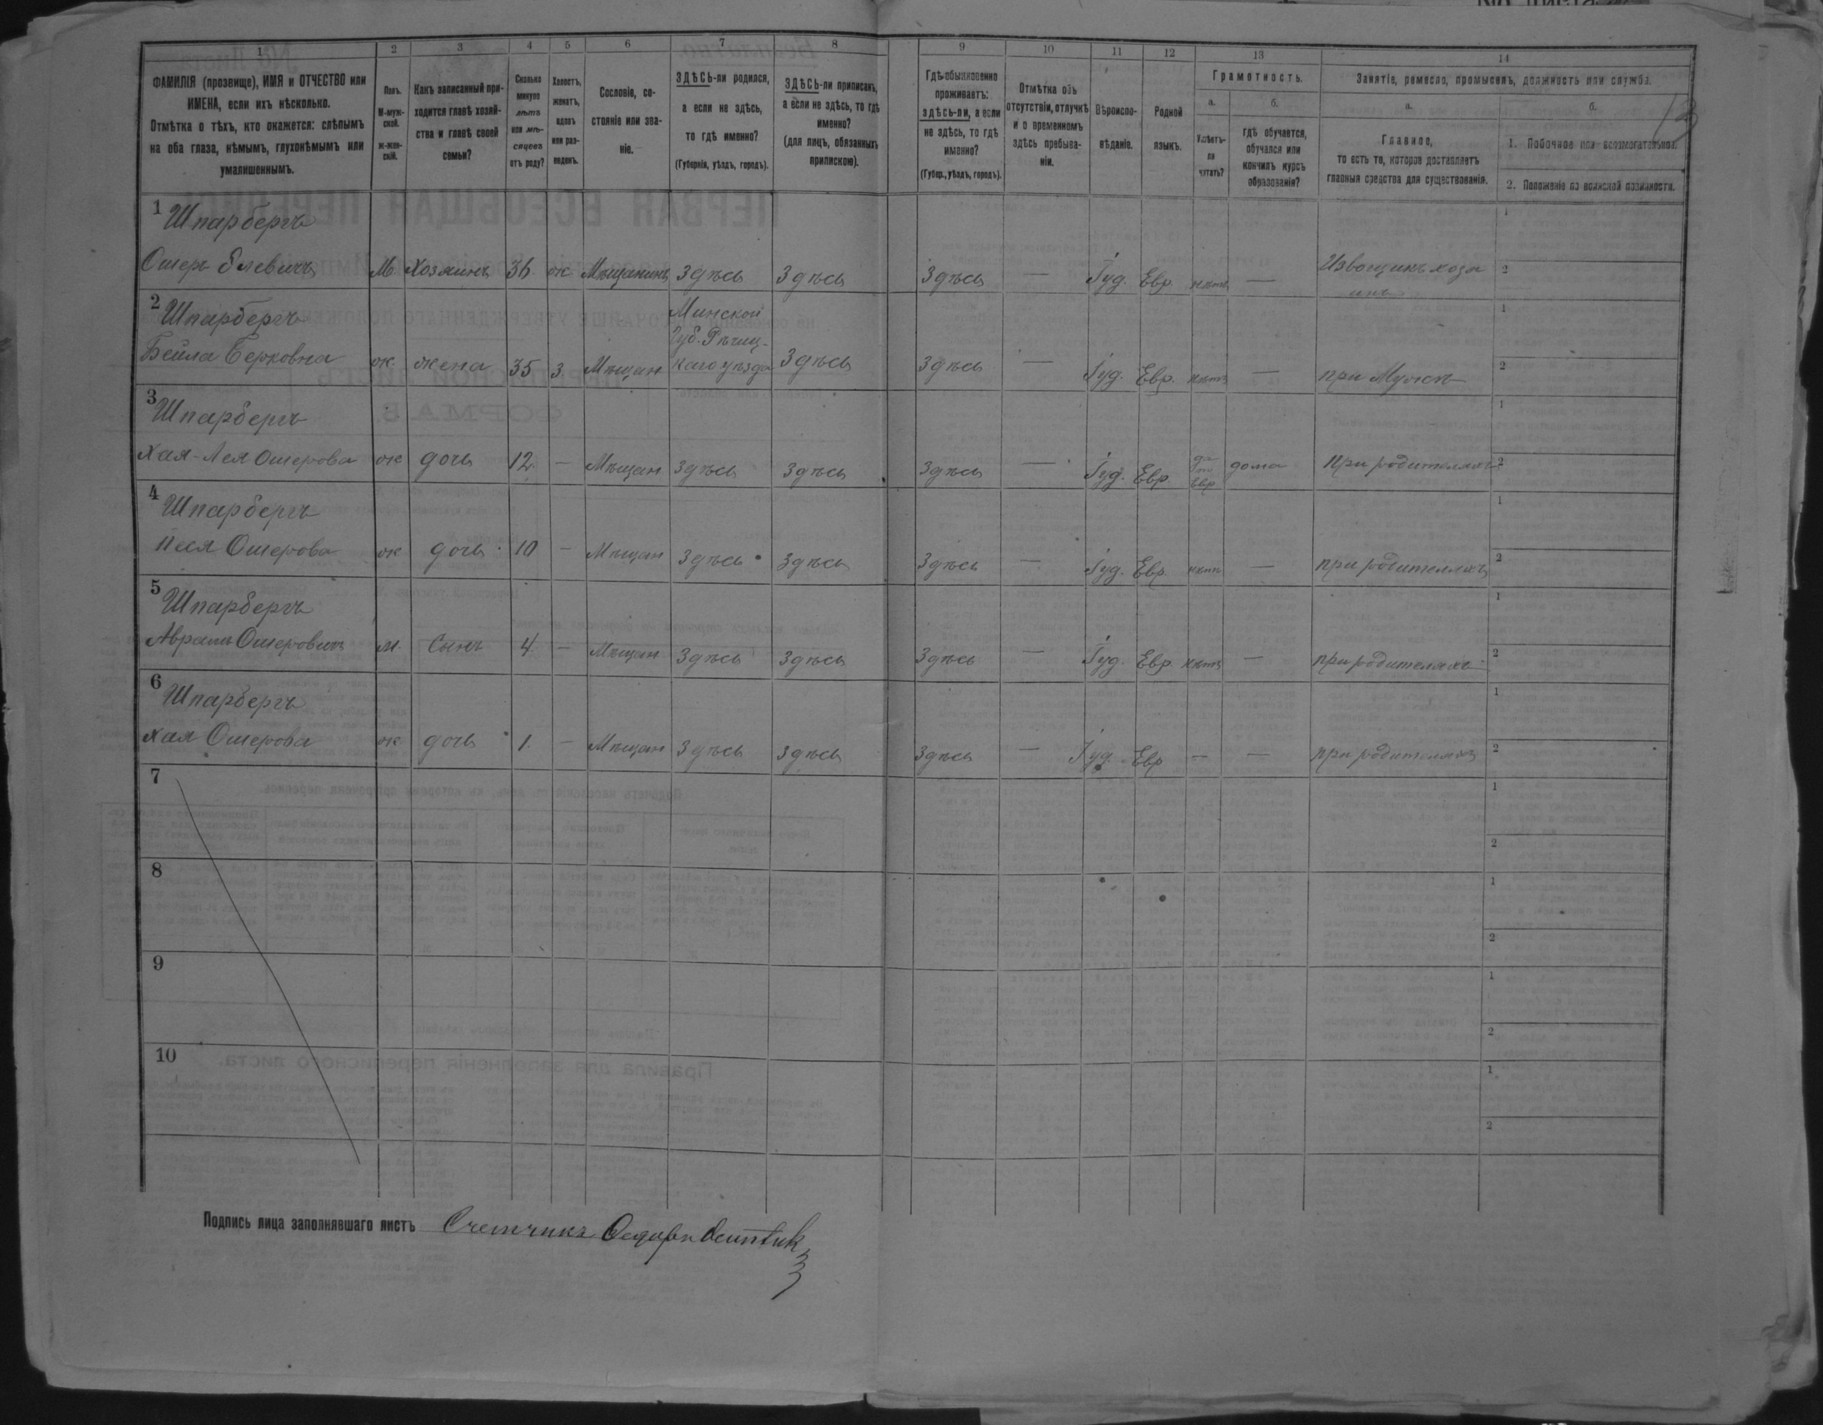 1 2 3 4 5 6 7 8 9 10 11 12 13 14
ФАМИЛІЯ (прозвище), ИМЯ и ОТЧЕСТВО или ИМЕНА, если ихъ нѣсколько.
Отмѣтка о тѣхъ, кто окажется: слѣпымъ на оба глаза, нѣмымъ, глухонѣмымъ или умалишеннымъ.
Полъ.
М-мужской.
Ж-женскій.
Какъ записанный приходится главѣ хозяйства и главѣ своей семьи?
Сколько минуло лѣтъ или мѣсяцевъ отъ роду?
Холостъ, женатъ, вдовъ или разведенъ.
Сословіе, состояніе или званіе.
ЗДѢСЬ-ли родился, а если не здѣсь, то гдѣ именно?
(Губернія, уѣздъ, городъ).
ЗДѢСЬ-ли приписанъ, а если не здѣсь, то гдѣ именно?
(для лицъ, обязанныхъ припискою).
Гдѣ обыкновенно проживаетъ: здѣсь-ли, а если не здѣсь, то гдѣ именно?
(Губер., уѣздъ, городъ).
Отмѣтка объ отсутствіи, отлучкѣ и о временномъ здѣсь пребываніи.
Вѣроисповѣданіе.
Родной языкъ.
Грамотность.
а.
Умѣетъ-ли читать?
б.
гдѣ обучается, обучался или кончилъ курсъ образованія?
Занятіе, ремесло, промыселъ, должность или служба.
а.
Главное,
то есть то, которое доставляетъ главныя средства для существованія.
б.
1. Побочное или вспомогательное.
2. Положеніе по воинской повинности.
13
1 Шпарбергъ
Ошеръ Элевичъ М Хозяинъ 36 ж Мѣщанинъ Здѣсь Здѣсь Здѣсь — Іуд. Евр. нѣтъ — Извощикъ хозяинъ
2 Шпарбергъ
Бейла Берковна ж жена 35 з Мѣщан Минской Губ. Рѣчицкаго уѣзда Здѣсь Здѣсь — Іуд. Евр. нѣтъ — при Мужѣ
3 Шпарбергъ
Хая-Лея Ошерова ж дочь 12 — Мѣщан Здѣсь Здѣсь Здѣсь — Іуд. Евр. да по Евр дома при родителяхъ
4 Шпарбергъ
Песя Ошерова ж дочь 10 — Мѣщан Здѣсь Здѣсь Здѣсь — Іуд. Евр. нѣтъ — при родителяхъ
5 Шпарбергъ
Абрамъ Ошеровичъ м. Сынъ 4 — Мѣщан Здѣсь Здѣсь Здѣсь — Іуд. Евр нѣтъ — при родителяхъ
6 Шпарбергъ
Хая Ошерова ж дочь 1 — Мѣщан Здѣсь Здѣсь Здѣсь — Іуд. Евр — — при родителяхъ
7
8
9
10
Подпись лица заполнявшаго листъ Счетчикъ